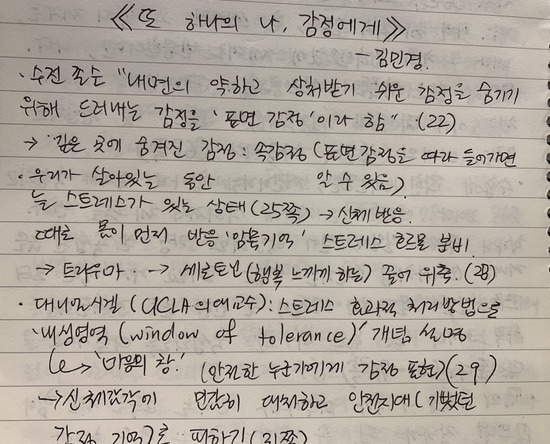 《또 하나의 나, 감정에게》
- 김민경.
· 수전 존슨 "내면의 약하고 상처받기 쉬운 감정을 숨기기
위해 드러내는 감정을 '표면 감정' 이라 함" (22)
→ 깊은 곳에 숨겨진 감정 : 속감정 (표면감정을 따라 들어가면
알 수 있음)
· 우리가 살아있는 동안
늘 스트레스가 있는 상태 (25쪽) → 신체 반응.
때로 몸이 먼저 반응 '암묵기억' 스트레스 호르몬 분비.
→ 트라우마. → 세로토닌 (행복 느끼게 하는) 끌어 위축. (28)
· 대니얼 시겔 (UCLA의대교수) : 스트레스 효과적 처리방법으로
'내성영역 (window of tolerance)' 개념 설명
↳ '마음의 창'. (안전한 누군가에게 감정 표현) (29)
→ 신체감각에 민감히 대처하고 안전지대 (기뻤던
감정 기억)로 피하기 (31쪽)